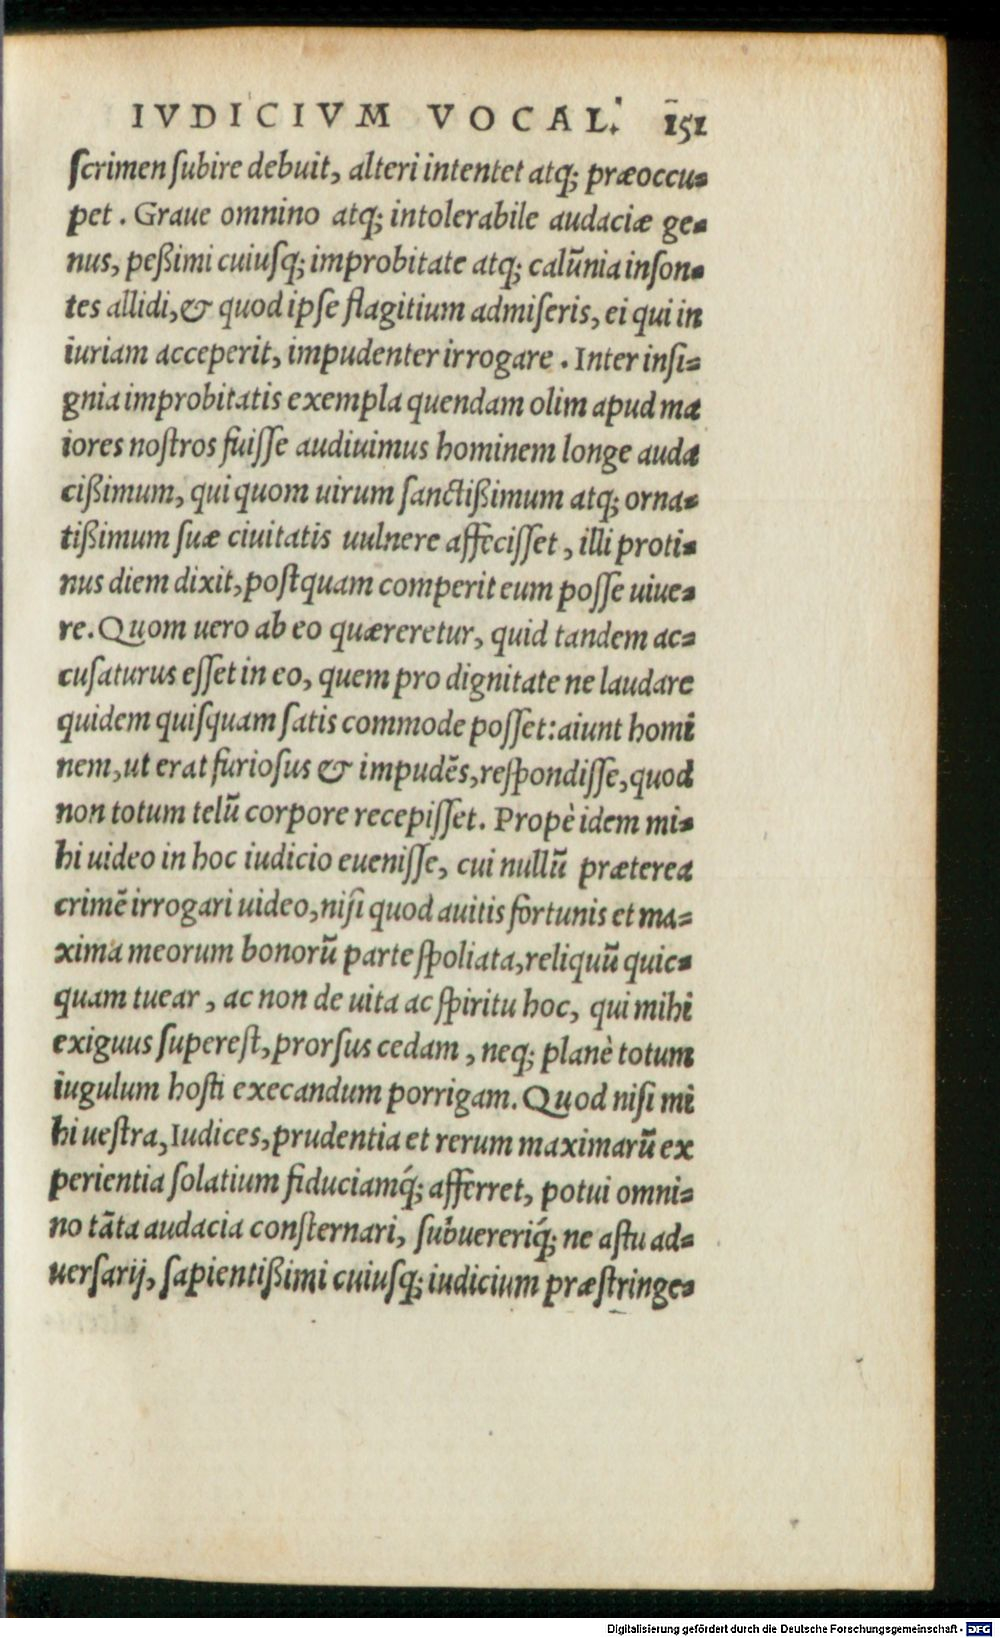 IVDICIVM VOCAL. 151
ſcrimen ſubire debuit, alteri intentet atq; præoccu-
pet. Graue omnino atq; intolerabile audaciæ ge-
nus, peßimi cuiuſq; improbitate atq; calũnia inſon-
tes allidi, & quod ipſe flagitium admiſeris, ei qui in
iuriam acceperit, impudenter irrogare. Inter inſi-
gnia improbitatis exempla quendam olim apud ma
iores noſtros fuiſſe audiuimus hominem longe auda
cißimum, qui quom uirum ſanctißimum atq; orna-
tißimum ſuæ ciuitatis uulnere affeciſſet, illi proti-
nus diem dixit, poſtquam comperit eum poſſe uiue-
re. Quom uero ab eo quæreretur, quid tandem ac-
cuſaturus eſſet in eo, quem pro dignitate ne laudare
quidem quiſquam ſatis commode poſſet: aiunt homi
nem, ut erat furioſus & impudẽs, reſpondiſſe, quod
non totum telũ corpore recepiſſet. Propè idem mi-
hi uideo in hoc iudicio eueniſſe, cui nullũ præterea
crimẽ irrogari uideo, niſi quod auitis fortunis et ma-
xima meorum bonorũ parte ſpoliata, reliquũ quic-
quam tuear, ac non de uita ac ſpiritu hoc, qui mihi
exiguus ſupereſt, prorſus cedam, neq; planè totum
iugulum hoſti execandum porrigam. Quod niſi mi
hi ueſtra, Iudices, prudentia et rerum maximarũ ex
perientia ſolatium fiduciamq́; afferret, potui omni-
no tãta audacia conſternari, ſubuereriq́; ne aſtu ad-
uerſarij, ſapientißimi cuiuſq; iudicium præſtringe-
Digitalisierung gefördert durch die Deutsche Forschungsgemeinschaft - DFG